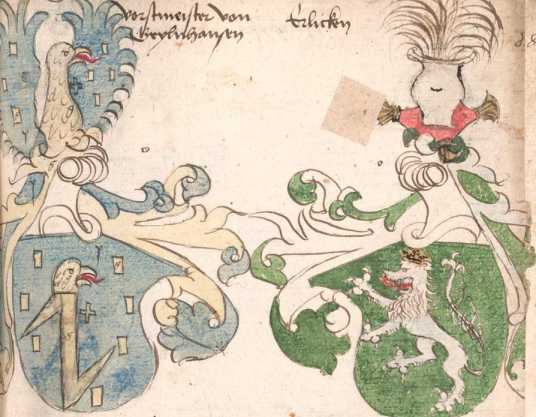 vorstmeister von
Geylnhausen
Erlicken